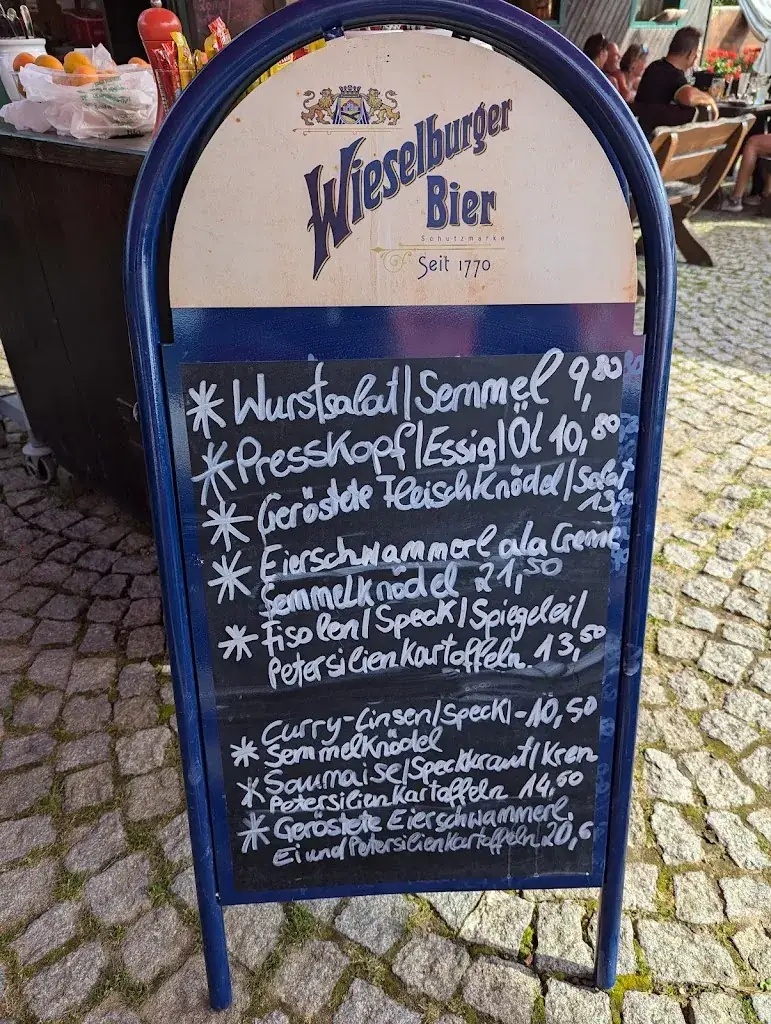 Wieselburger
Bier
Schutzmarke
Seit 1770
* Wurstsalat/Semmel 9,80
* Presskopf/Essig/Öl 10,80
* Geröstete Fleischknödel/Salat
* Eierschwammerl ala Creme
Semmelknödel 21,50
* Fisolen/Speck/Spiegelei/
Petersilienkartoffeln 13,50
Curry-Linsen/Speck/- 10,50
* Semmelknödel
* Saumaise/Speckkraut/Kren
Petersilienkartoffeln 14,60
* Geröstete Eierschwammerl
Ei und Petersilienkartoffeln